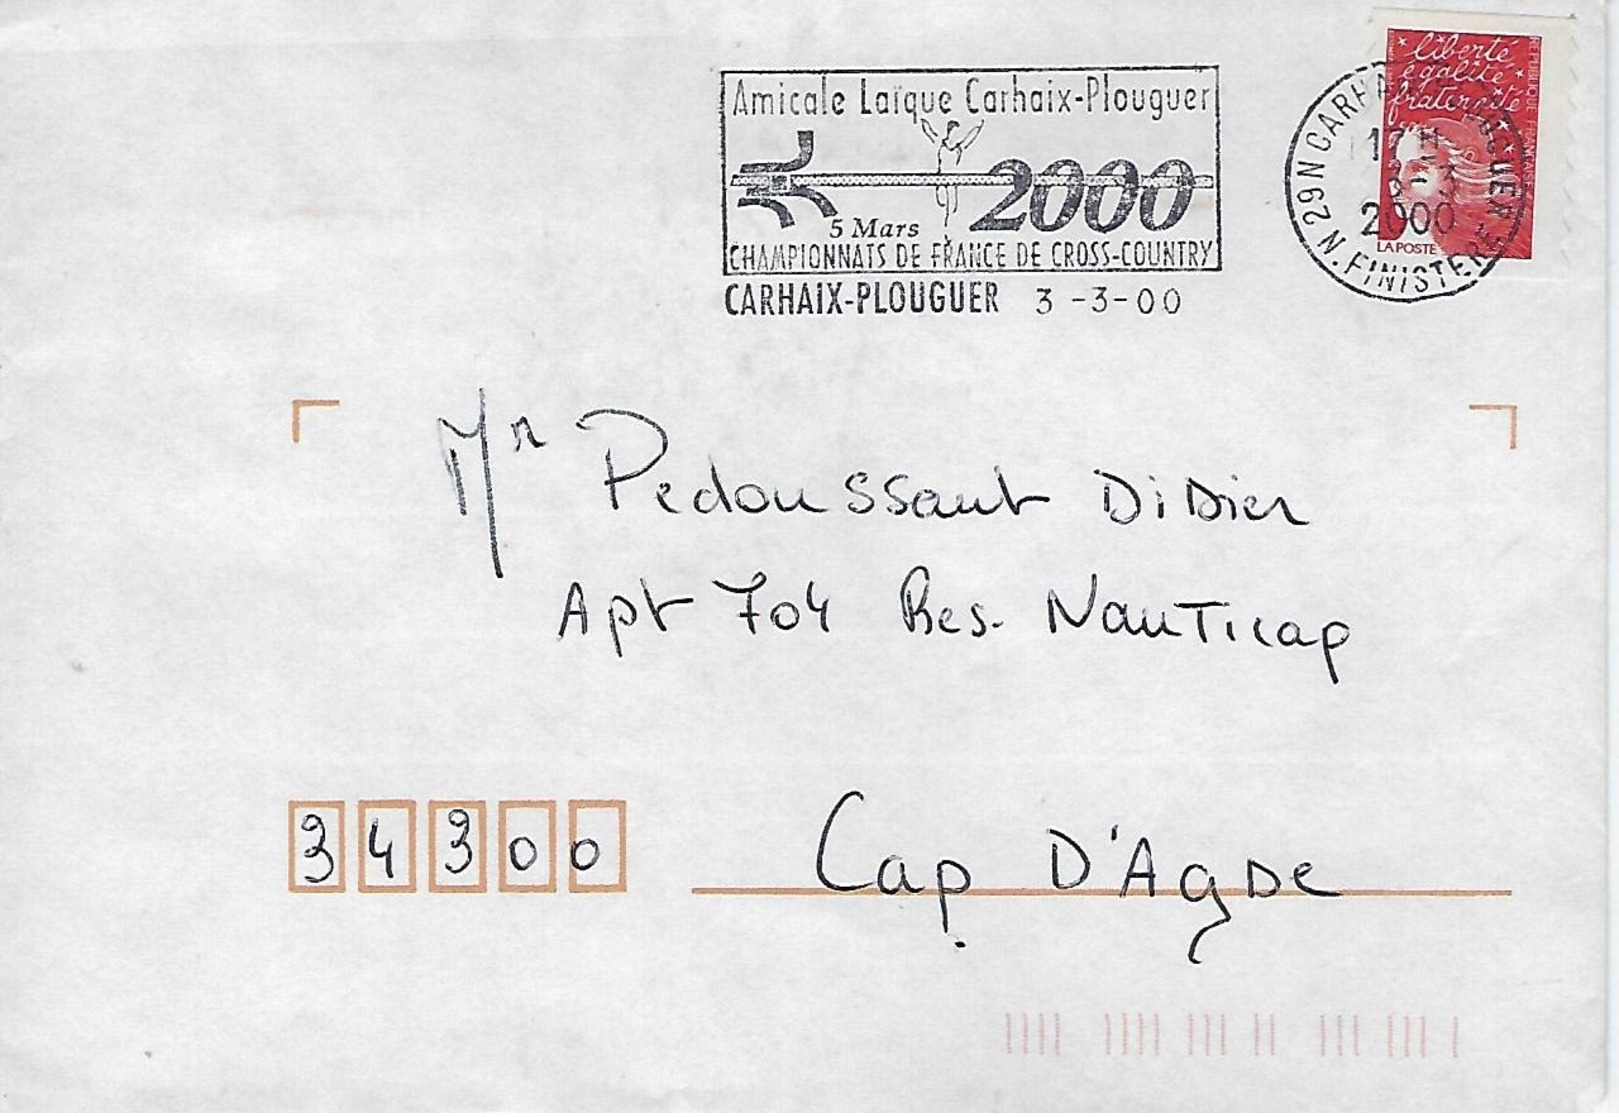 Amicale Laïque Carhaix-Plouguer
2000
5 Mars
CHAMPIONNATS DE FRANCE DE CROSS-COUNTRY
CARHAIX-PLOUGUER 3-3-00
liberté
égalité
fraternité
REPUBLIQUE FRANCAISE
LA POSTE
29N CARHAIX PLOUGUER
2000
N. FINISTERE
Mr Pedoussaut Didier
Apt 704 Res. Nauticap
34300 Cap D'Agde